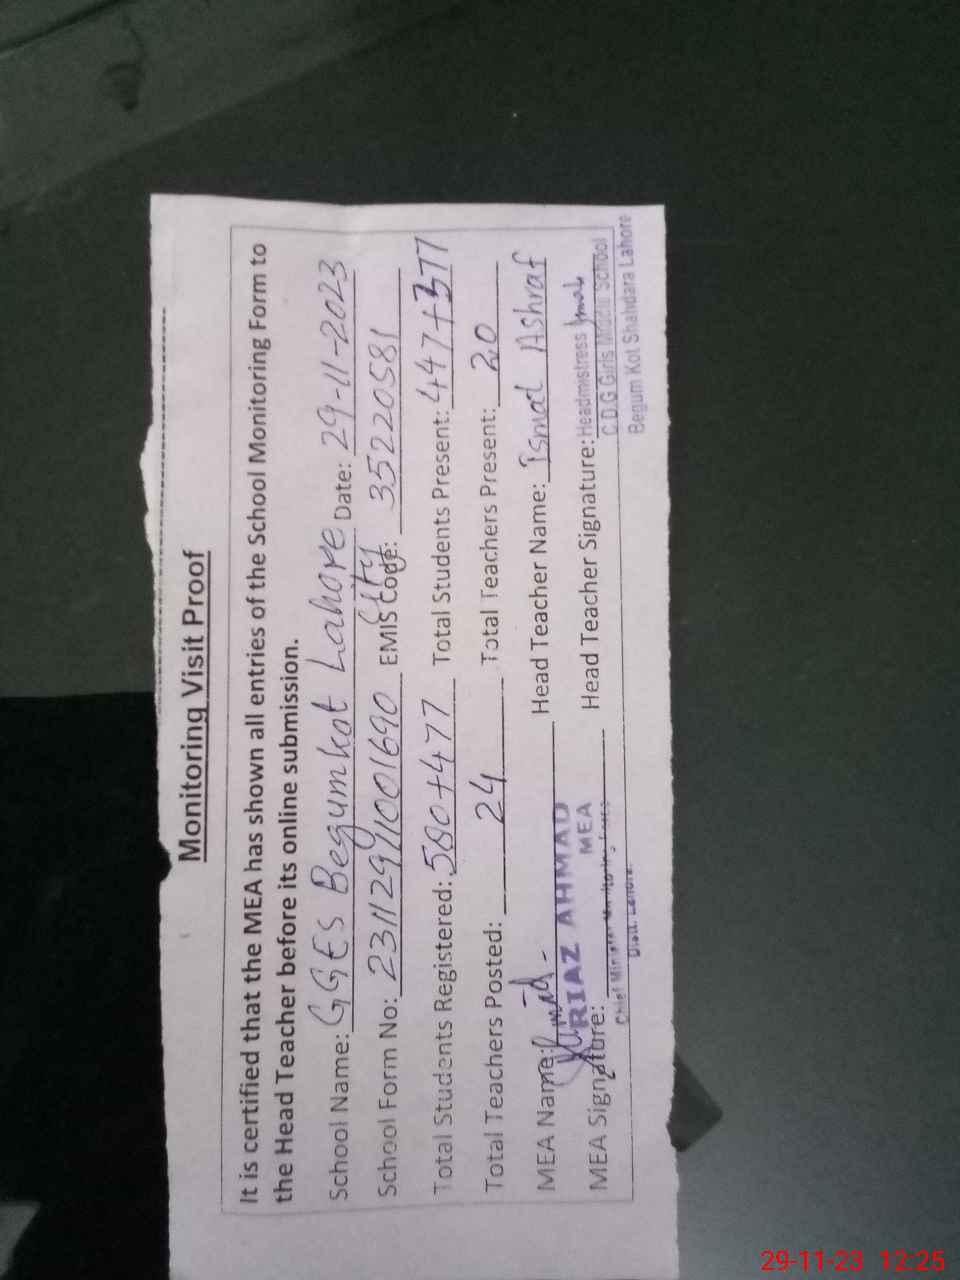 Monitoring Visit Proof
It is certified that the MEA has shown all entries of the School Monitoring Form to
the Head Teacher before its online submission.
School Name: GGES Begumkot Lahore City Date: 29-11-2023
School Form No: 23112911001690 EMIS Code: 35220581
Total Students Registered: 580+477 Total Students Present: 447+377
Total Teachers Posted: 24 Total Teachers Present: 20
MEA Name: Head Teacher Name: Ismat Ashraf
RIAZ AHMAD
MEA
MEA Signature: Head Teacher Signature: Headmistress
Chief Minister Monitoring Force
Distt. Lahore.
C.D.G Girls Middle School
Begum Kot Shahdara Lahore
29-11-23 12:25